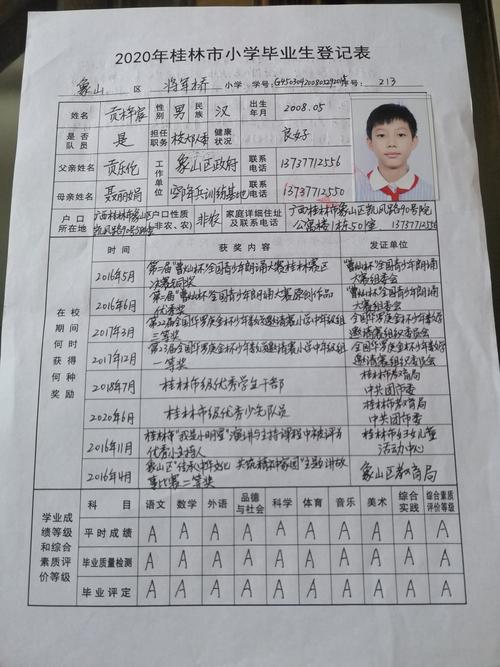 2020年桂林市小学毕业生登记表
象山 区 将军桥 小学 学号: 座号: 213
姓名 性别 男 民族 汉 出生年月 2008.05
是否队员 是 担任职务 校大队委 健康状况 良好
父亲姓名 贡乐伦 工作单位 象山区政府 联系电话 13737712556
母亲姓名 聂丽娟 联系电话 13737712550
户口所在地 广西桂林市象山区凯风路90号5栋 户口性质(非农、农) 非农 家庭详细住址及联系电话 广西桂林市象山区凯风路90号院公寓楼1栋50室 13737712556
在校期间何时获得何种奖励
时间 获奖内容 发证单位
2016年5月 第二届"曹灿杯"全国青少年朗诵大赛桂林赛区决赛 "曹灿杯"全国青少年朗诵大赛组委会
2016年6月 第二届"曹灿杯"全国青少年朗诵大赛原创作品优秀奖 "曹灿杯"全国青少年朗诵大赛组委会
2017年3月 第22届全国华罗庚金杯少年数学邀请赛小学中年级组三等奖 全国华罗庚金杯少年数学邀请赛组织委员会
2017年12月 第23届全国华罗庚金杯少年数学邀请赛小学中年级组一等奖 全国华罗庚金杯少年数学邀请赛组织委员会
2018年7月 桂林市级优秀学生干部 桂林市教育局 中共团市委
2020年6月 桂林市级优秀少先队员 桂林市教育局 中共团市委
2016年11月 桂林市"我是小明星"演讲与主持课程中被评为优秀小主持人 桂林市妇女儿童活动中心
2016年4月 象山区"传承中华文化 共筑精神家园"主题讲故事比赛二等奖 象山区教育局
学业成绩等级和综合素质评价等级
科目 语文 数学 外语 品德与社会 科学 体育 音乐 美术 综合实践 综合素质评价等级
平时成绩 A A A A A A A A A A
毕业质量检测 A A A A A A A A A A
毕业评定 A A A A A A A A A A